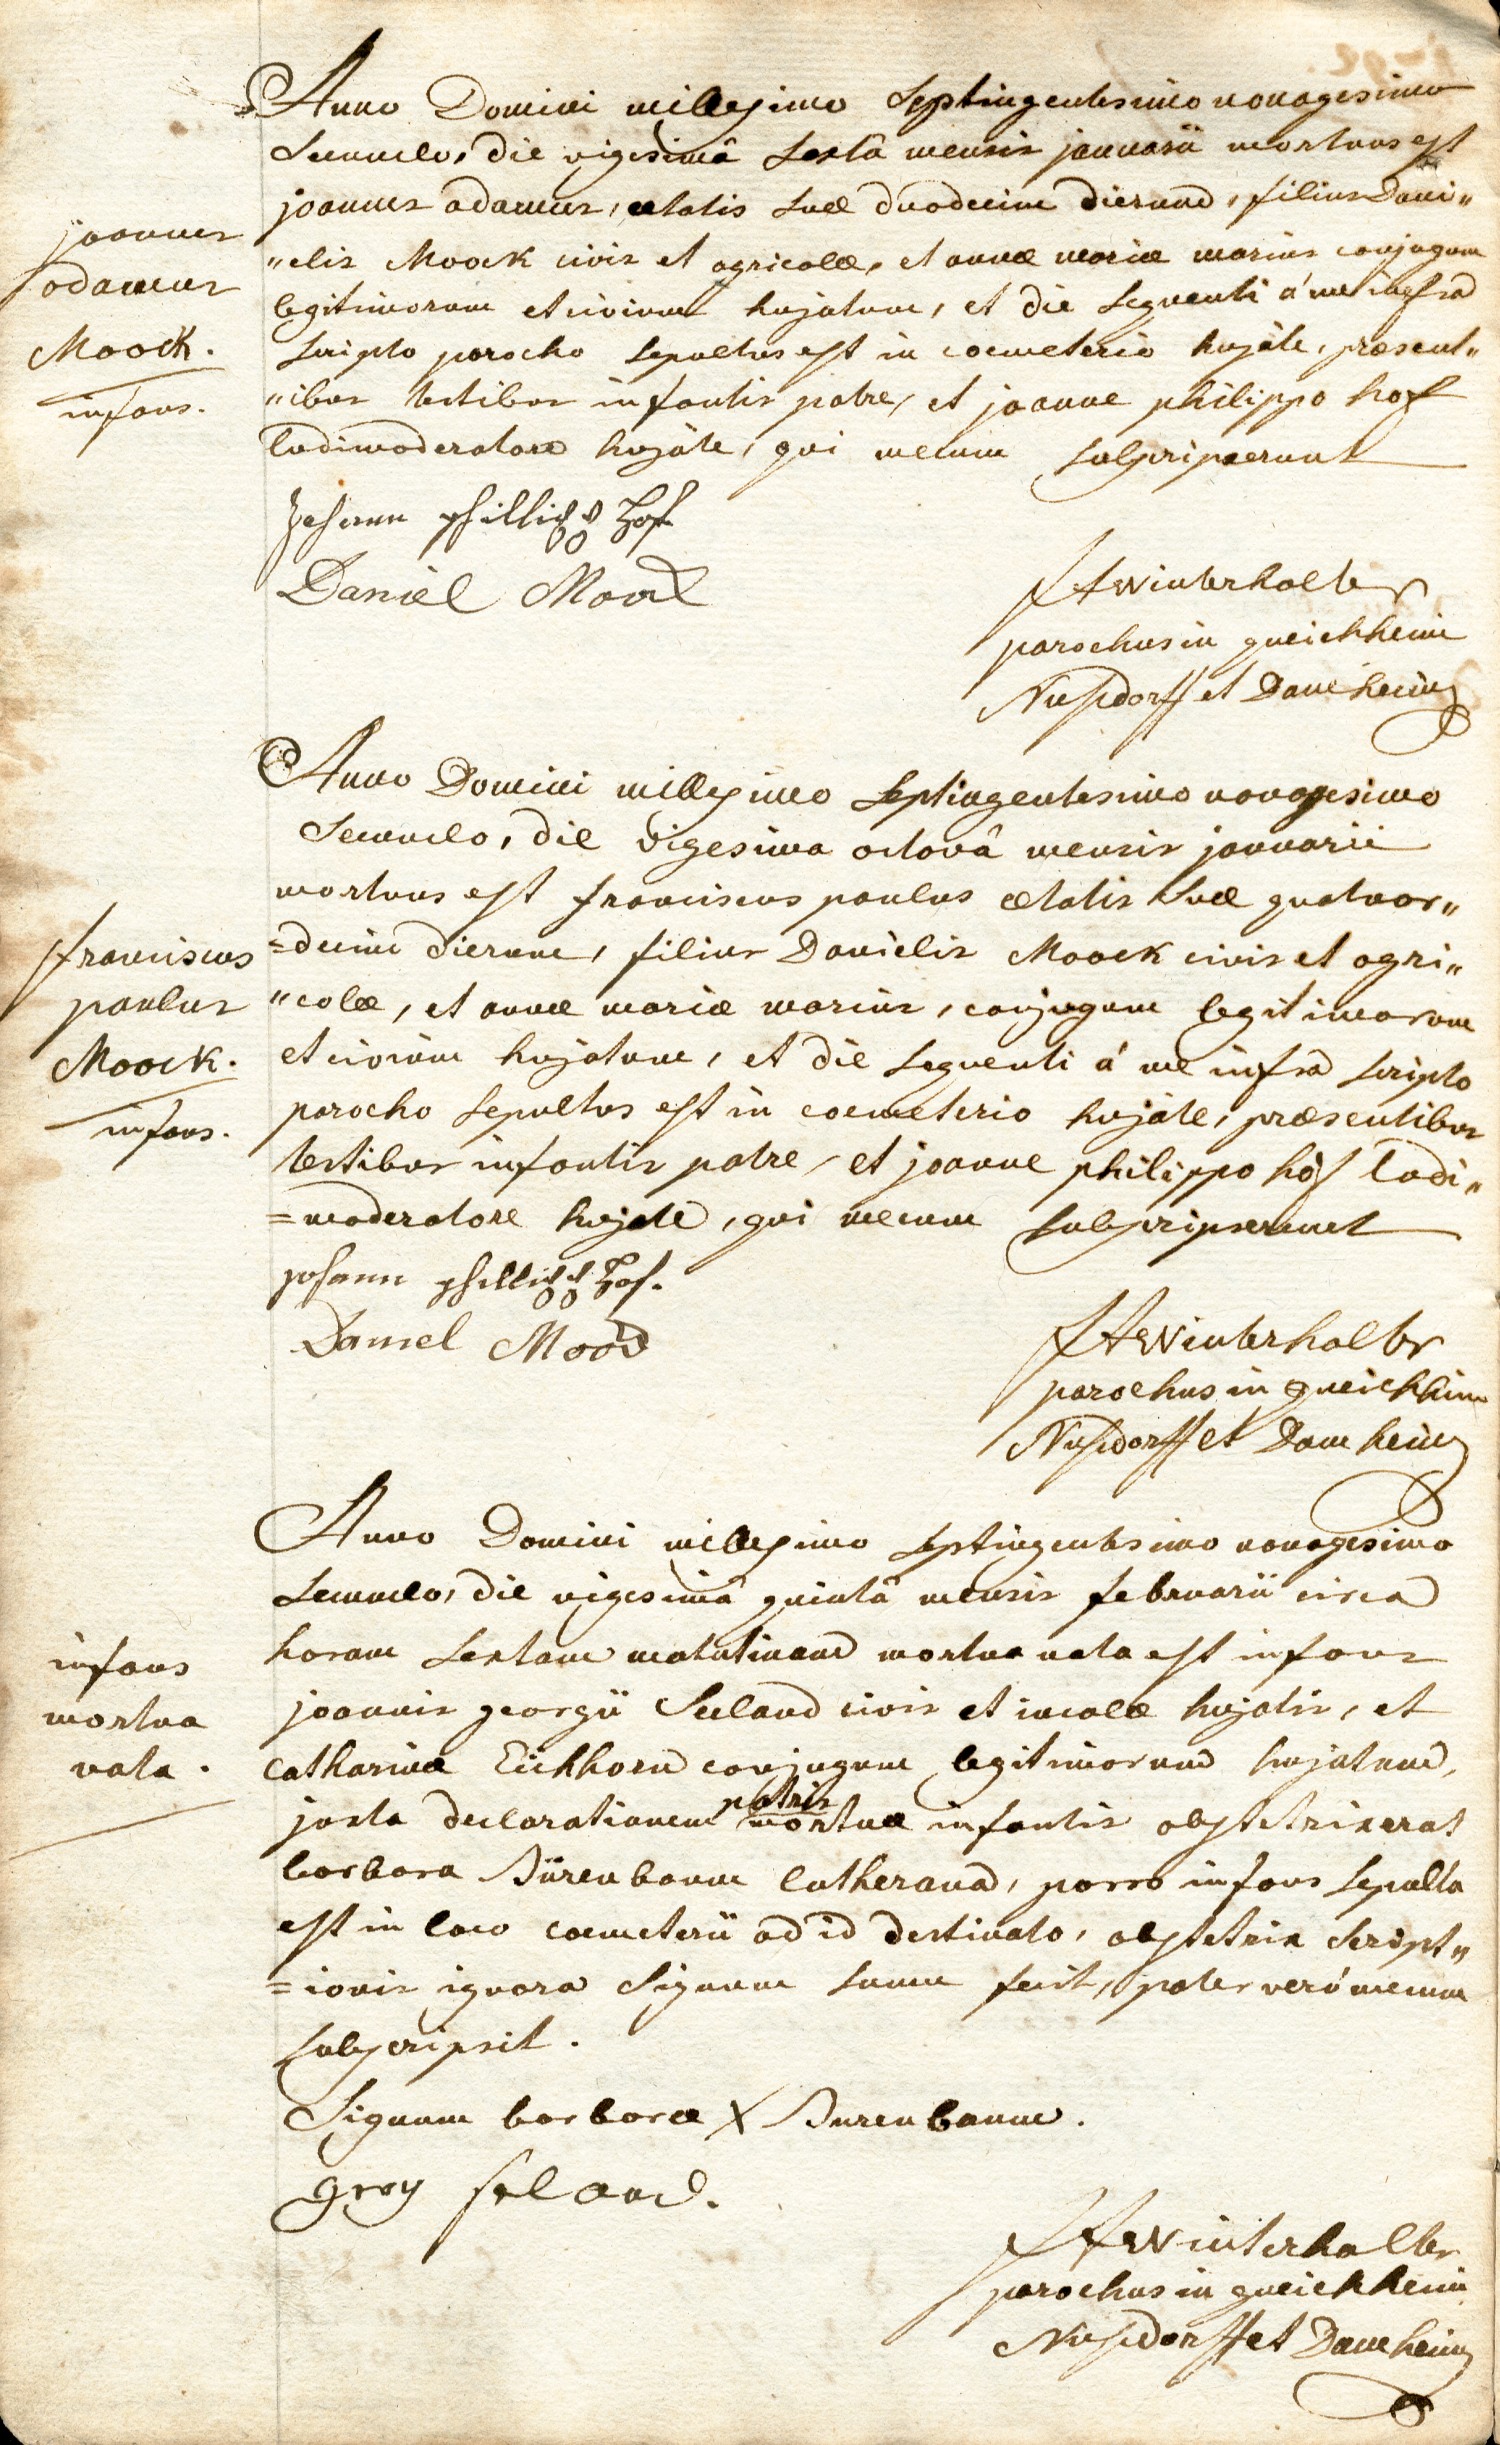 Anno Domini millesimo Septingentesimo nonagesimo
Secundo, die vigesimâ Sextâ mensis januarii mortuus est
joannes adamus, ætatis Suæ duodecim dierum, filius Dani„
„elis Moock civis et agricolæ, et annæ mariæ marins conjugum
legitimorum et civium hujatum, et die Sequenti á me infra
joannes
adamus
Moock.
infans.
Scripto parocho Sepultus est in coemeterio hujáte, præsent„
„ibus testibus infantis patre, et joanne philippo hof
ludimoderatore hujáte, qui mecum subscripserunt
Johann phillipp Hof
Daniel Moock
FAWinterhalter
parochus in queichheim
Nusdorff et Damheim
Anno Domini millesimo Septingentesimo nonagesimo
Secundo, die vigesima octavâ mensis januarii
mortuus est franciscus paulus ætatis Suæ quatuor„
=decim dierum, filius Danielis Moock civis et agri„
„colæ, et annæ mariæ marins, conjugum legitimorum
et civium hujatum, et die Sequenti á me infra scripto
franciscus
paulus
Moock.
infans.
parocho Sepultus est in coemeterio hujáte, præsentibus
testibus infantis patre, et joanne philippo hof ludi„
=moderatore hujate, qui mecum subscripserunt
Johann phillipp Hof.
Daniel Moock
FAWinterhalter
parochus in queichheim
Nusdorff et Damheim
Anno Domini millesimo Septingentesimo nonagesimo
Secundo, die vigesimâ quintâ mensis februarii circa
horam Sextam matutinam mortua nata est infans
joannis georgii Seeland civis et incolæ hujatis, et
catharinæ Eichhorn conjugum legitimorum hujatum,
infans
mortua
nata.
patris
juxta declarationem mortuæ infantis obstetrix erat
barbara Dürenbaum lutherana, porro infans Sepulta
est in loco coemeterii ad id destinato, obstetrix Script„
=ionis ignara Signum suum fecit, pater veró mecum
subscripsit.
Signum barbaræ X Durenbaum.
georg seland.
FAWinterhalter
parochus in queichheim
Nusdorff et Damheim